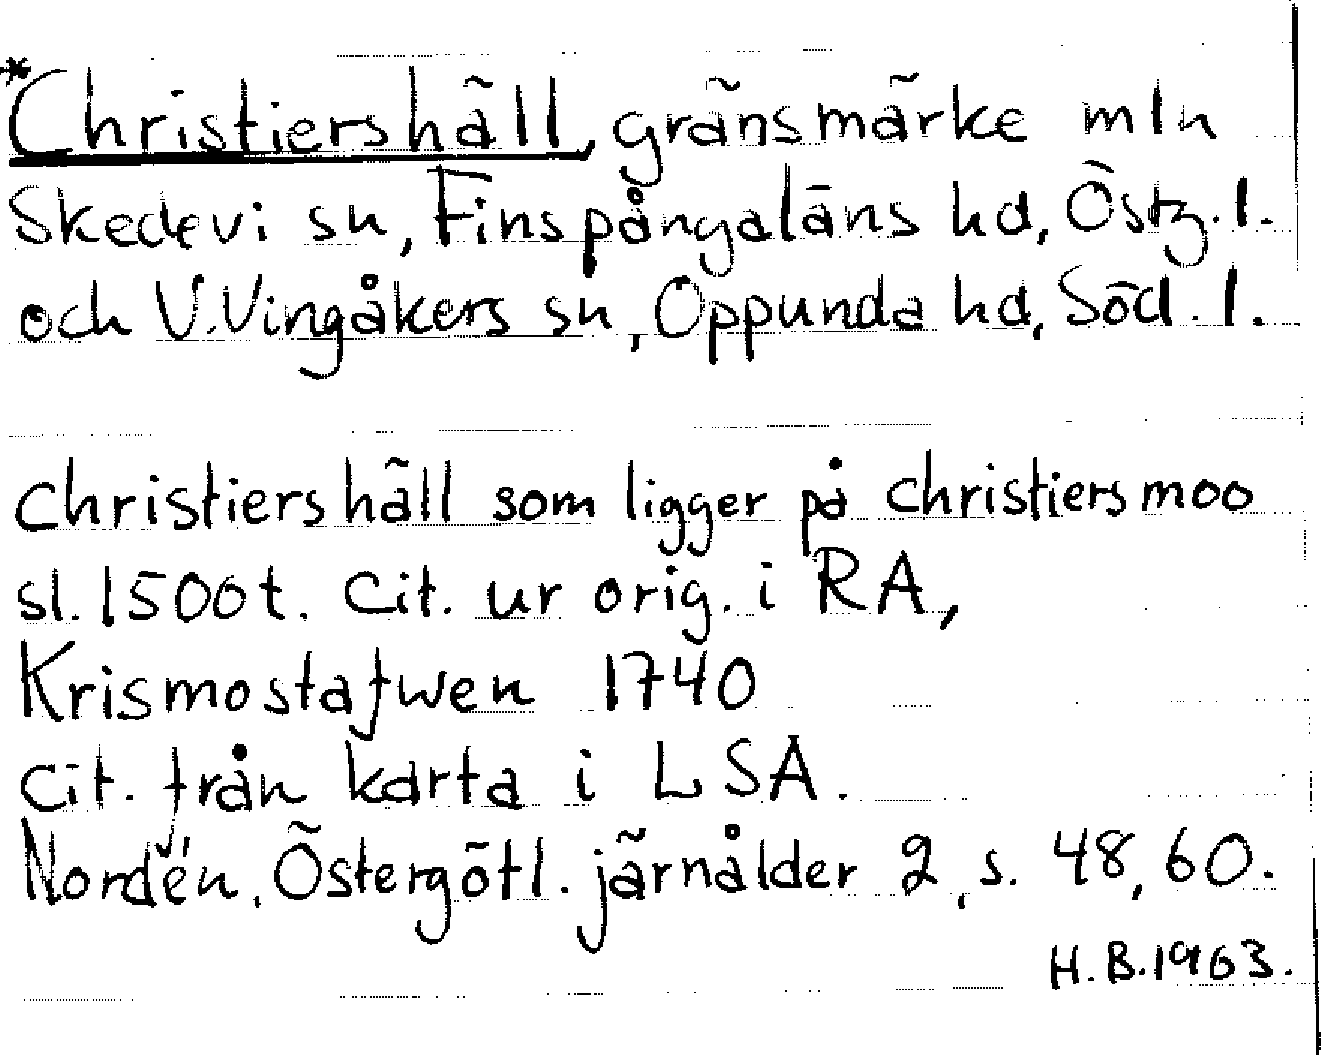 *Christiershäll, gränsmärke mln
Skedevi sn, Finspångaläns hd, Östg. l.
och V. Vingåkers sn, Oppunda hd, Söd. l.
christiershäll som ligger på christiersmoo
sl. 1500t. Cit. ur orig. i RA,
Krismostafwen 1740
Cit. från karta i LSA.
Nordén, Östergötl. järnålder 2, s. 48, 60.
H.B. 1963.